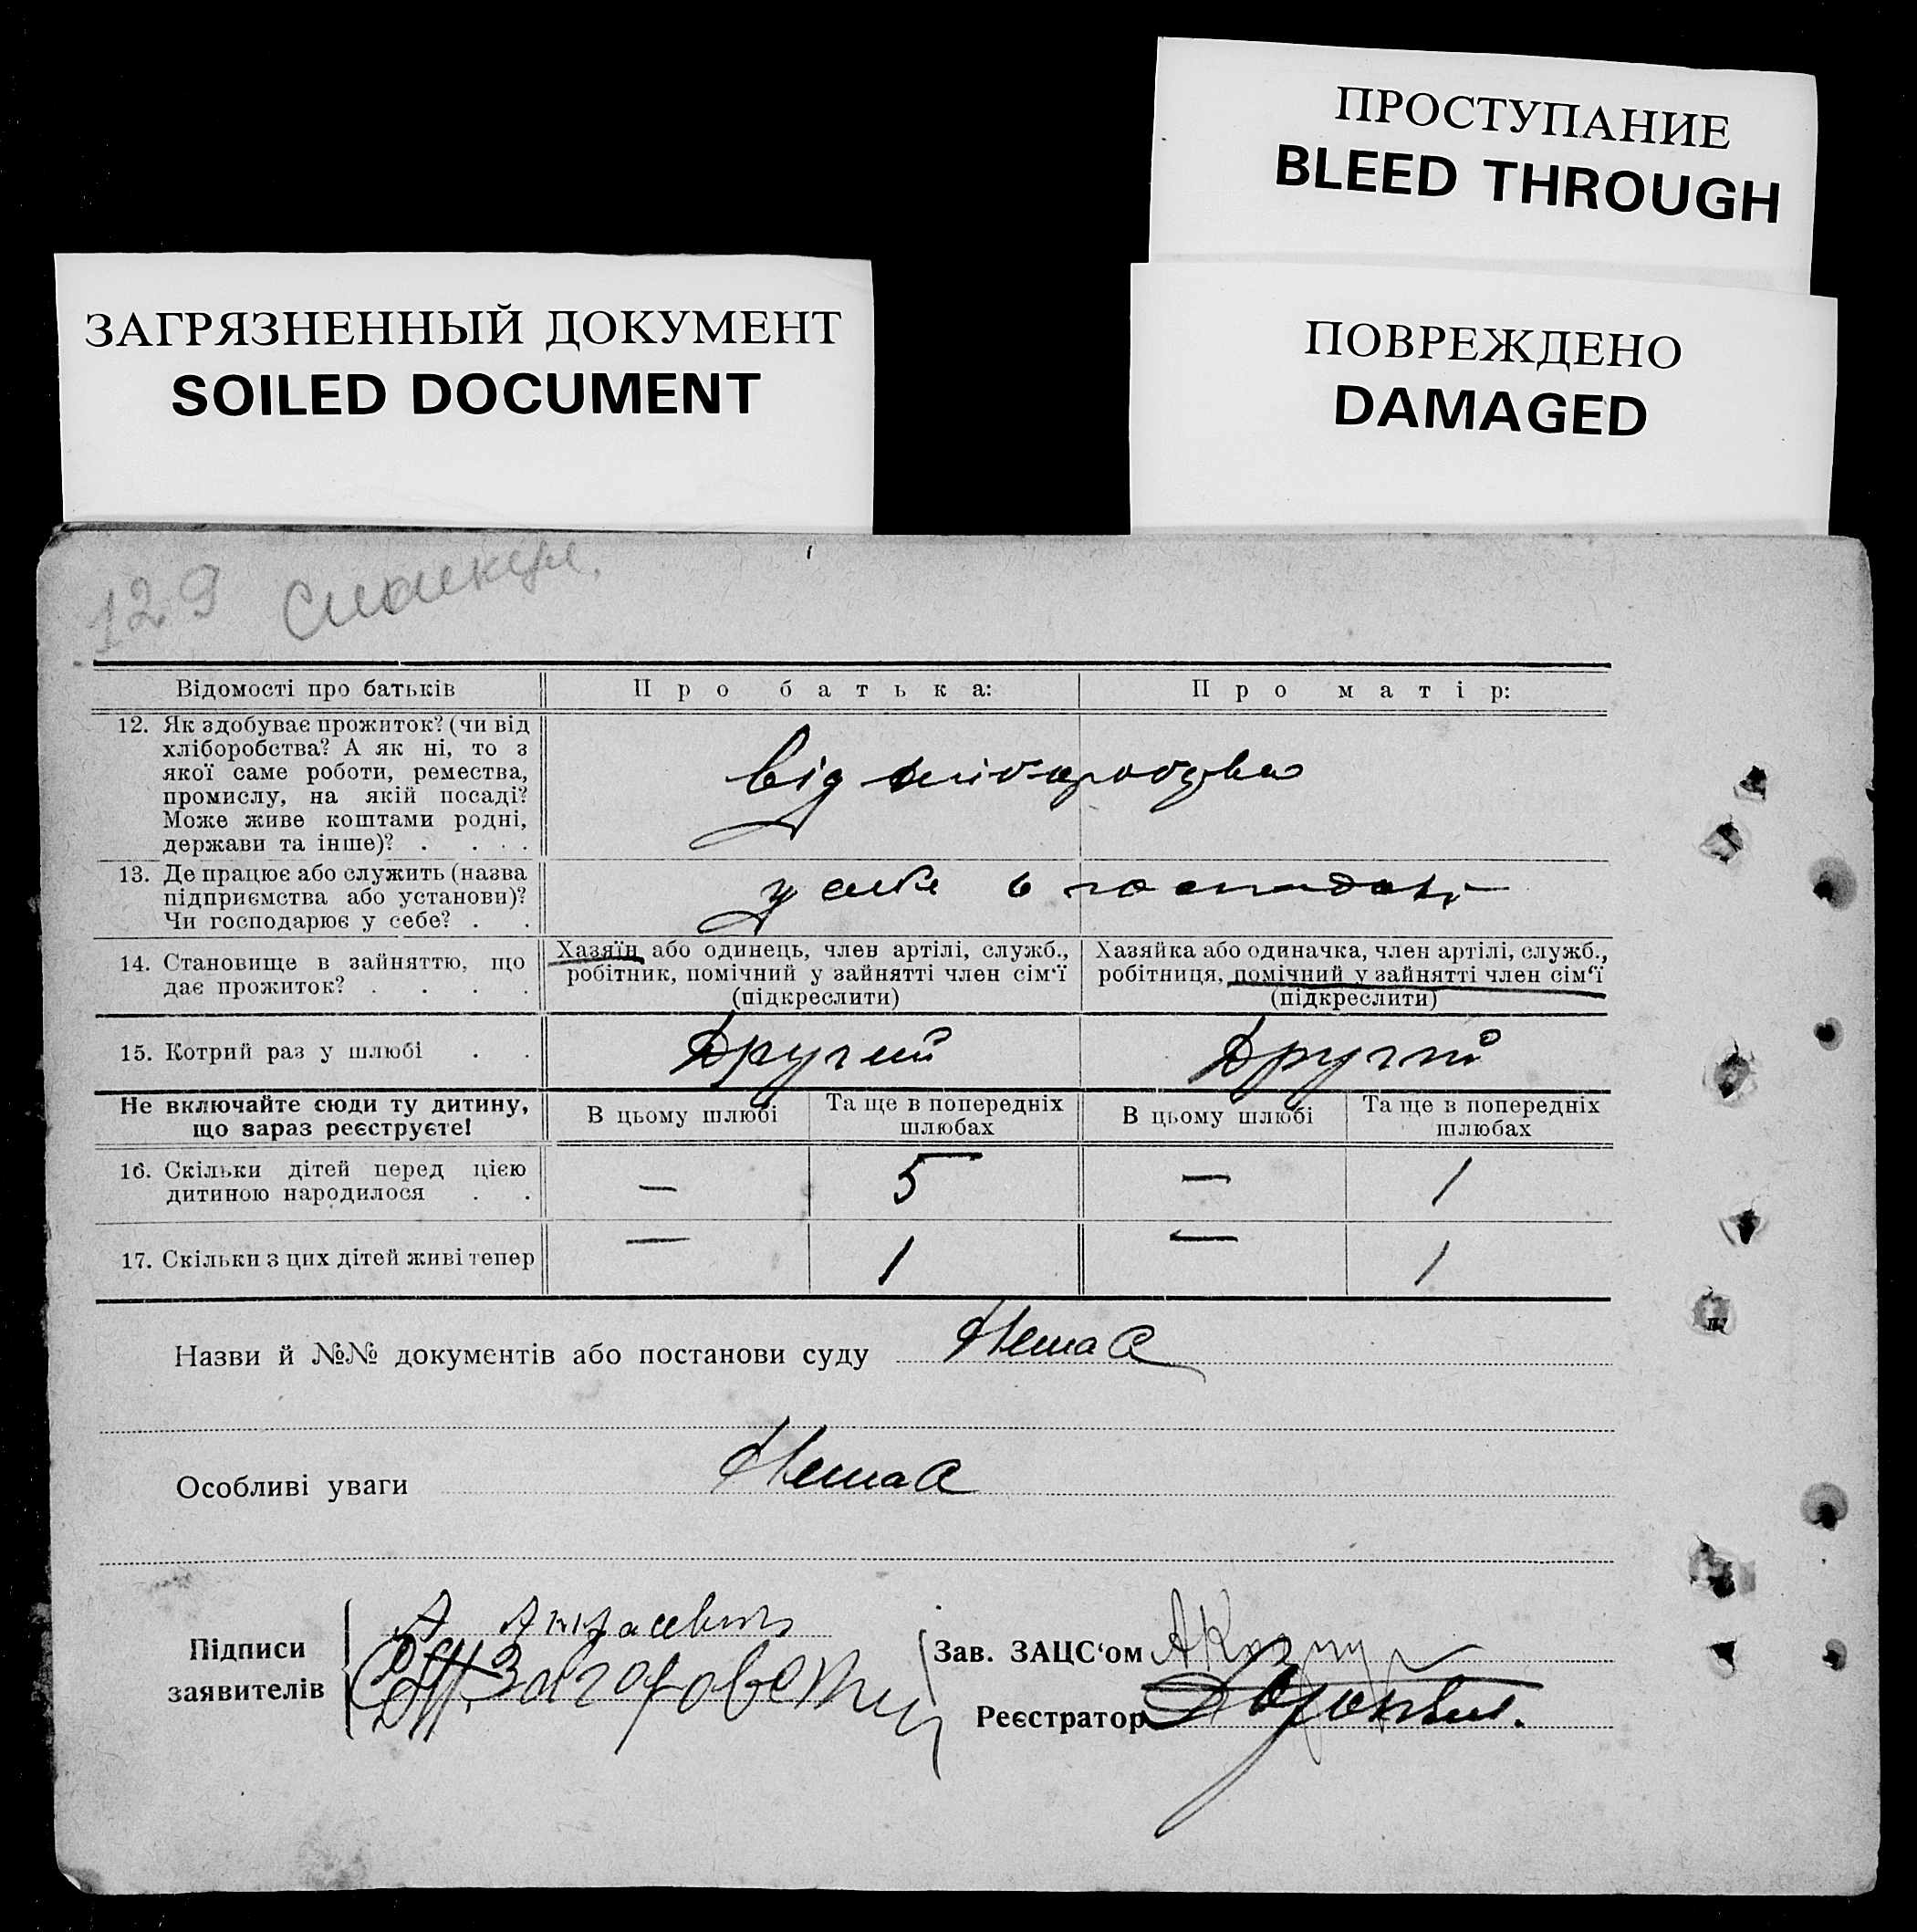 ПРОСТУПАНИЕ
BLEED THROUGH
ЗАГРЯЗНЕННЫЙ ДОКУМЕНТ
SOILED DOCUMENT
ПОВРЕЖДЕНО
DAMAGED
129
Відомості про батьків
Про батька:
Про матір:
12. Як здобуває прожиток? (чи від
хліборобства? А як ні, то з
якої саме роботи, ремества,
промислу, на якій посаді?
Може живе коштами родні,
держави та інше)? . . . .
від хліборобства
13. Де працює або служить (назва
підприємства або установи)?
Чи господарює у себе? . .
у себе в
14. Становище в зайняттю, що
дає прожиток? . . . .
Хазяїн або одинець, член артілі, служб.,
робітник, помічний у зайнятті член сім‘ї
(підкреслити)
Хазяйка або одиначка, член артілі, служб.,
робітниця, помічний у зайнятті член сім‘ї
(підкреслити)
15. Котрий раз у шлюбі . .
Другий
Другий
Не включайте сюди ту дитину,
що зараз реєструєте!
В цьому шлюбі
Та ще в попередніх
шлюбах
В цьому шлюбі
Та ще в попередніх
шлюбах
16. Скільки дітей перед цією
дитиною народилося . .
— 5 — 1
17. Скільки з цих дітей живі тепер
— 1 — 1
Назви й №№ документів або постанови суду Немає
Особливі уваги Немає
Підписи
заявителів
Зав. ЗАЦС‘ом
Реєстратор